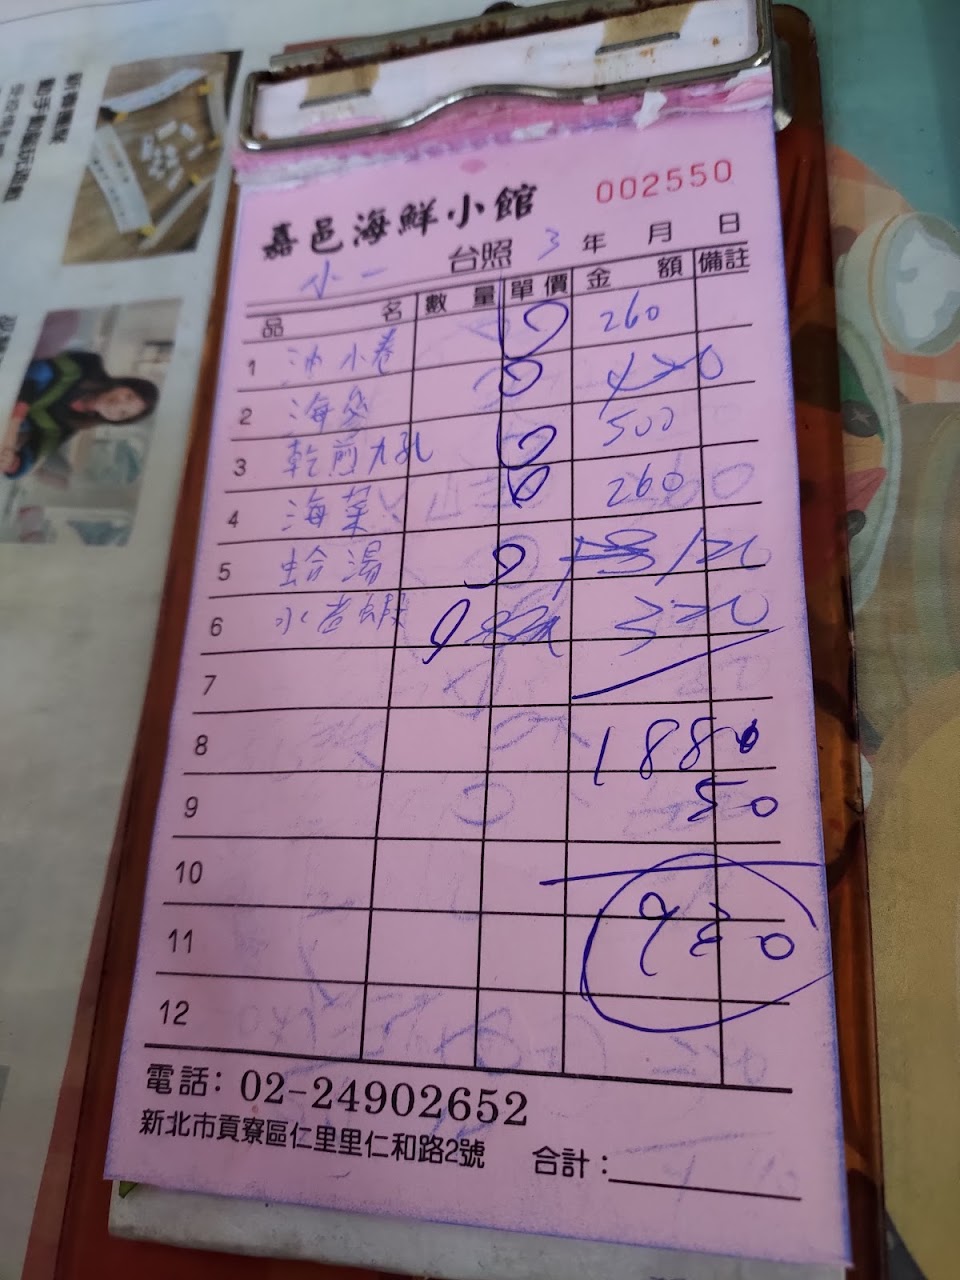 002550
嘉邑海鮮小館
小一 台照 3 年 月 日
品 名 數 量 單 價 金 額 備註
1 沖小卷 260
2 海參 420
3 乾煎九孔 500
4 海菜 260
5 蛤湯 120
6 水煮蝦 320
7
8 1880
9 50
10
11 930
12
電話：02-24902652
新北市貢寮區仁里里仁和路2號 合計：